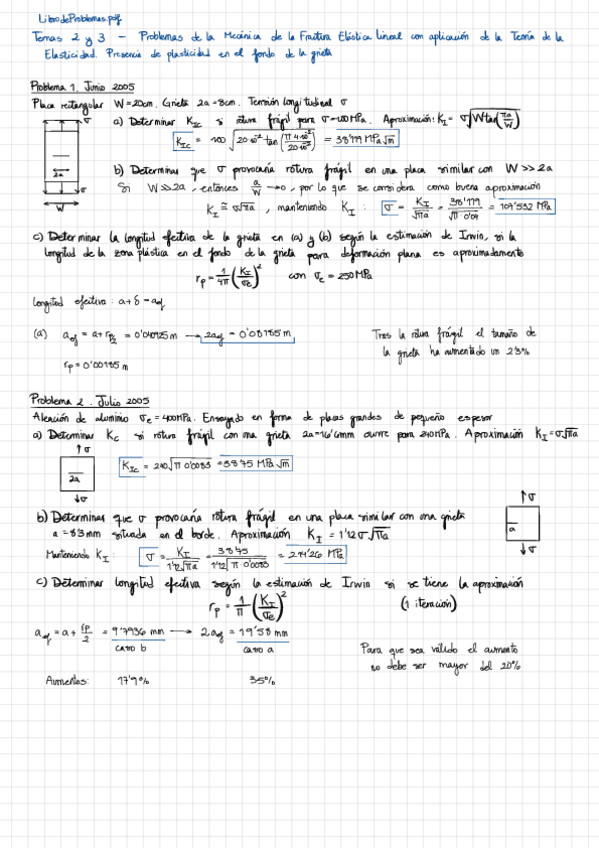 LibrodeProblemas.pdf
Temas 2 y 3 – Problemas de la Mecánica de la Fractura Elástica Lineal con aplicación de la Teoría de la
Elasticidad. Presencia de plasticidad en el fondo de la grieta
Problema 1. Junio 2005
Placa rectangular W=20cm. Grieta 2a=8cm. Tensión longitudinal σ
a) Determinar K_IC si rotura frágil para σ=100MPa. Aproximación: K_I = σ√(W tan(πa/W))
K_IC = 100 √(20·10⁻² tan(π 4·10⁻²/20·10⁻²)) = 38'119 MPa√m
b) Determinar que σ provocaría rotura frágil en una placa similar con W>>2a
Si W>>2a, entonces a/W → 0, por lo que se considera como buena aproximación
K_I ≅ σ√πa, manteniendo K_I: σ = K_I/√πa = 38'119/√π·0'04 = 107'532 MPa
c) Determinar la longitud efectiva de la grieta en (a) y (b) según la estimación de Irwin, si la
longitud de la zona plástica en el fondo de la grieta para deformación plana es aproximadamente
r_p = 1/4π (K_I/σ_e)² con σ_e = 250MPa
Longitud efectiva: a+δ = a_ef
(a) a_ef = a + r_p/2 = 0'040925m → 2a_ef = 0'08185m
r_p = 0'00185m
Tras la rotura frágil el tamaño de
la grieta ha aumentado un 2'3%
Problema 2. Julio 2005
Aleación de aluminio σ_e = 400MPa. Ensayado en forma de placas grandes de pequeño espesor
a) Determinar K_C si rotura frágil con una grieta 2a=16'6mm ocurre para 240MPa. Aproximación K_I=σ√πa
K_IC = 240√π 0'0083 = 38'75 MPa√m
b) Determinar que σ provocaría rotura frágil en una placa similar con una grieta
a=8'3mm situada en el borde. Aproximación K_I = 1'12σ√πa
Manteniendo K_I: σ = K_I/1'12√πa = 38'75/1'12√π·0'0083 = 214'26 MPa
c) Determinar longitud efectiva según la estimación de Irwin si se tiene la aproximación
r_p = 1/π (K_I/σ_e)² (1 iteración)
a_ef = a + r_p/2 = 9'7936 mm → 2a_ef = 19'58mm
caso b caso a
Para que sea válido el aumento
no debe ser mayor del 20%
Aumentos: 17'9% 35%